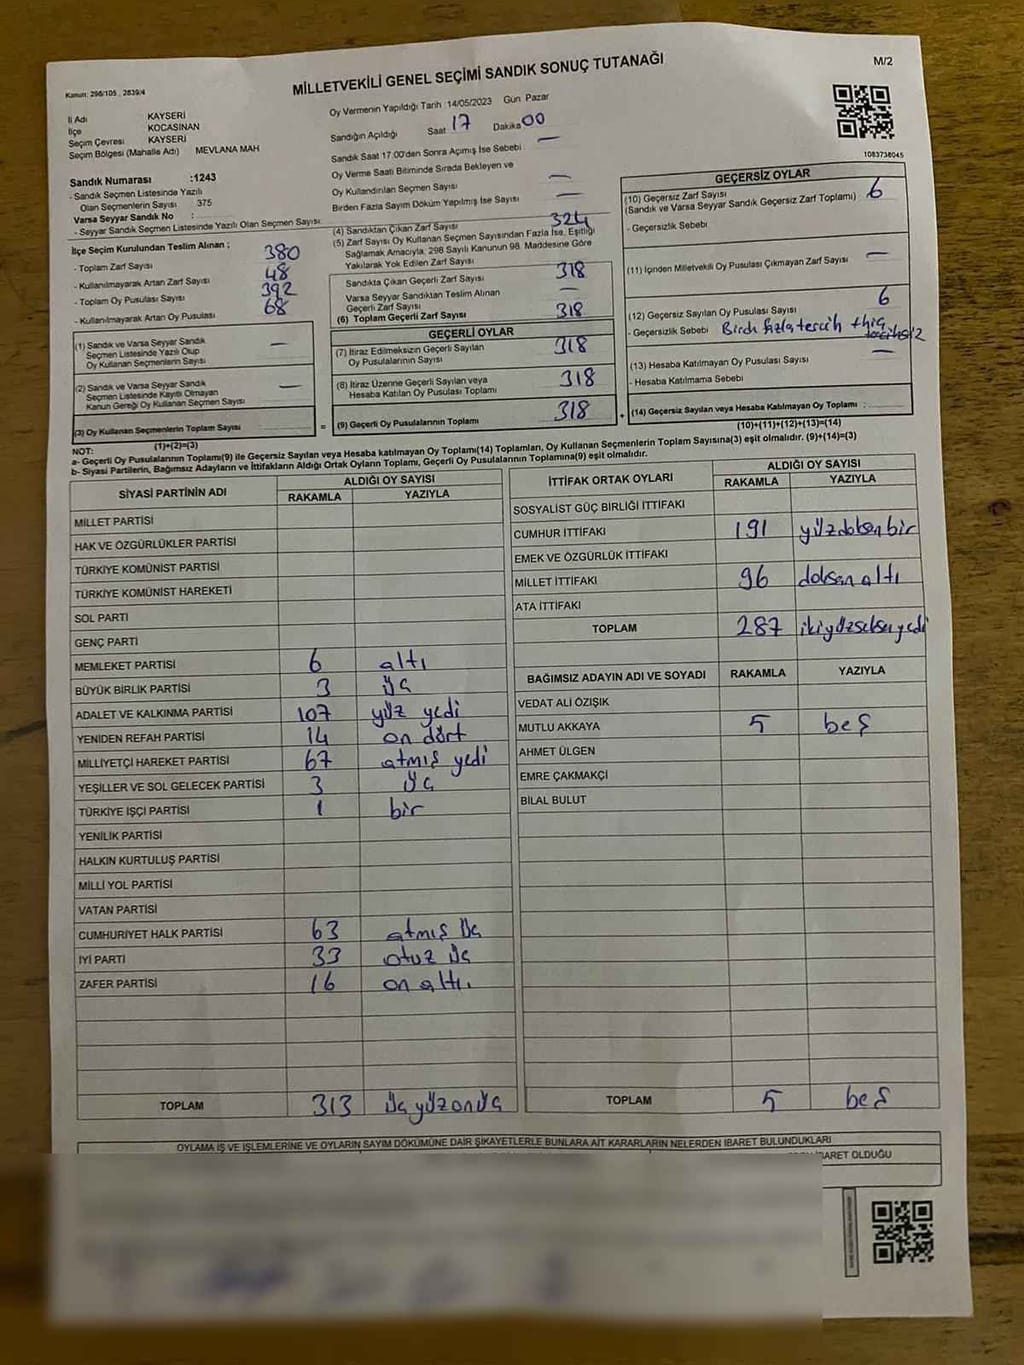 Kanun: 298/105 , 2839/4
MİLLETVEKİLİ GENEL SEÇİMİ SANDIK SONUÇ TUTANAĞI
M/2
İl Adı KAYSERİ
İlçe KOCASİNAN
Seçim Çevresi KAYSERİ
Seçim Bölgesi (Mahalle Adı) MEVLANA MAH
Sandık Numarası :1243
- Sandık Seçmen Listesinde Yazılı
Olan Seçmenlerin Sayısı 375
Varsa Seyyar Sandık No :
- Seyyar Sandık Seçmen Listesinde Yazılı Olan Seçmen Sayısı
İlçe Seçim Kurulundan Teslim Alınan ;
- Toplam Zarf Sayısı 380
- Kullanılmayarak Artan Zarf Sayısı 48
- Toplam Oy Pusulası Sayısı 392
- Kullanılmayarak Artan Oy Pusulası 68
(1) Sandık ve Varsa Seyyar Sandık
Seçmen Listesinde Yazılı Olup
Oy Kullanan Seçmenlerin Sayısı —
(2) Sandık ve Varsa Seyyar Sandık
Seçmen Listesinde Kayıtlı Olmayan
Kanun Gereği Oy Kullanan Seçmen Sayısı —
(3) Oy Kullanan Seçmenlerin Toplam Sayısı
(1)+(2)=(3)
Oy Vermenin Yapıldığı Tarih :14/05/2023 Gün Pazar
Sandığın Açıldığı Saat 17 Dakika 00
Sandık Saat 17:00'den Sonra Açımış İse Sebebi —
Oy Verme Saati Bitiminde Sırada Bekleyen ve
Oy Kullandırılan Seçmen Sayısı —
Birden Fazla Sayım Döküm Yapılmış İse Sayısı —
(4) Sandıktan Çıkan Zarf Sayısı 324
(5) Zarf Sayısı Oy Kullanan Seçmen Sayısından Fazla İse, Eşitliği
Sağlamak Amacıyla, 298 Sayılı Kanunun 98. Maddesine Göre
Yakılarak Yok Edilen Zarf Sayısı
Sandıkta Çıkan Geçerli Zarf Sayısı 318
Varsa Seyyar Sandıktan Teslim Alınan
Geçerli Zarf Sayısı —
(6) Toplam Geçerli Zarf Sayısı 318
GEÇERLİ OYLAR
(7) İtiraz Edilmeksizin Geçerli Sayılan
Oy Pusulalarının Sayısı 318
(8) İtiraz Üzerine Geçerli Sayılan veya
Hesaba Katılan Oy Pusulası Toplamı 318
= (9) Geçerli Oy Pusulalarının Toplamı 318
1083738045
GEÇERSİZ OYLAR
(10) Geçersiz Zarf Sayısı
(Sandık ve Varsa Seyyar Sandık Geçersiz Zarf Toplamı) 6
- Geçersizlik Sebebi
(11) İçinden Milletvekili Oy Pusulası Çıkmayan Zarf Sayısı —
(12) Geçersiz Sayılan Oy Pusulası Sayısı 6
- Geçersizlik Sebebi
(13) Hesaba Katılmayan Oy Pusulası Sayısı —
- Hesaba Katılmama Sebebi
+ (14) Geçersiz Sayılan veya Hesaba Katılmayan Oy Toplamı :
(10)+(11)+(12)+(13)=(14)
NOT:
a- Geçerli Oy Pusulalarının Toplamı(9) ile Geçersiz Sayılan veya Hesaba katılmayan Oy Toplamı(14) Toplamları, Oy Kullanan Seçmenlerin Toplam Sayısına(3) eşit olmalıdır. (9)+(14)=(3)
b- Siyasi Partilerin, Bağımsız Adayların ve İttifakların Aldığı Ortak Oyların Toplamı, Geçerli Oy Pusulalarının Toplamına(9) eşit olmalıdır.
SİYASİ PARTİNİN ADI
ALDIĞI OY SAYISI
RAKAMLA YAZIYLA
MİLLET PARTİSİ
HAK VE ÖZGÜRLÜKLER PARTİSİ
TÜRKİYE KOMÜNİST PARTİSİ
TÜRKİYE KOMÜNİST HAREKETİ
SOL PARTİ
GENÇ PARTİ
MEMLEKET PARTİSİ 6 altı
BÜYÜK BİRLİK PARTİSİ 3 üç
ADALET VE KALKINMA PARTİSİ 107 yüz yedi
YENİDEN REFAH PARTİSİ 14 on dört
MİLLİYETÇİ HAREKET PARTİSİ 67 atmış yedi
YEŞİLLER VE SOL GELECEK PARTİSİ 3 üç
TÜRKİYE İŞÇİ PARTİSİ 1 bir
YENİLİK PARTİSİ
HALKIN KURTULUŞ PARTİSİ
MİLLİ YOL PARTİSİ
VATAN PARTİSİ
CUMHURİYET HALK PARTİSİ 63 atmış üç
İYİ PARTİ 33 otuz üç
ZAFER PARTİSİ 16 on altı.
TOPLAM 313 üçyüzonüç
İTTİFAK ORTAK OYLARI
ALDIĞI OY SAYISI
RAKAMLA YAZIYLA
SOSYALİST GÜÇ BİRLİĞİ İTTİFAKI
CUMHUR İTTİFAKI 191 yüzdoksanbir
EMEK VE ÖZGÜRLÜK İTTİFAKI
MİLLET İTTİFAKI 96 doksan altı
ATA İTTİFAKI
TOPLAM 287 ikiyüzseksenyedi
BAĞIMSIZ ADAYIN ADI VE SOYADI RAKAMLA YAZIYLA
VEDAT ALİ ÖZIŞIK
MUTLU AKKAYA 5 beş
AHMET ÜLGEN
EMRE ÇAKMAKÇİ
BİLAL BULUT
TOPLAM 5 beş
OYLAMA İŞ VE İŞLEMLERİNE VE OYLARIN SAYIM DÖKÜMÜNE DAİR ŞİKAYETLERLE BUNLARA AİT KARARLARIN NELERDEN İBARET BULUNDUKLARI
OLDUĞU